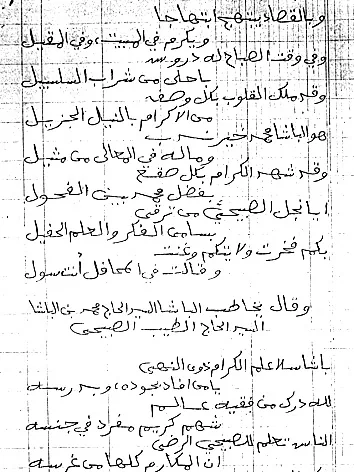 وبالقضاء يبتهج ابتهاجا
ويكرم في المبيت، وفي المقيل
وفي وقت الصباح له دروس
باحلى من شراب السلسبيل
وقد ملك القلوب بكل وصف
من الاكرام بالنيل الجزيل
هو الباشا محمد خير
وماله في المعالى من مثيل
وقد شهد الكرام بكل صقع
بفضل محمد بين الفحول
ايا نجل الصبيحي من ترقى
بسامى الفكر والعلم الحفيل
بكم فخرت ولايتكم وغنت
وقالت في المحافل أنت سول
وقال يخاطب الباشا السيد الحاج محمد بن الباشا
السيد الحاج الطيب الصبيحي
باشا سلا علم الكرام ذوى النهى
يا من افاد بجوده، وبدرسه
لله درك من فقيه عالم
شهم كريم مفرد في جنسه
الناس تعلم للصبيحي الرضى
ان المكارم كلها من غرسه